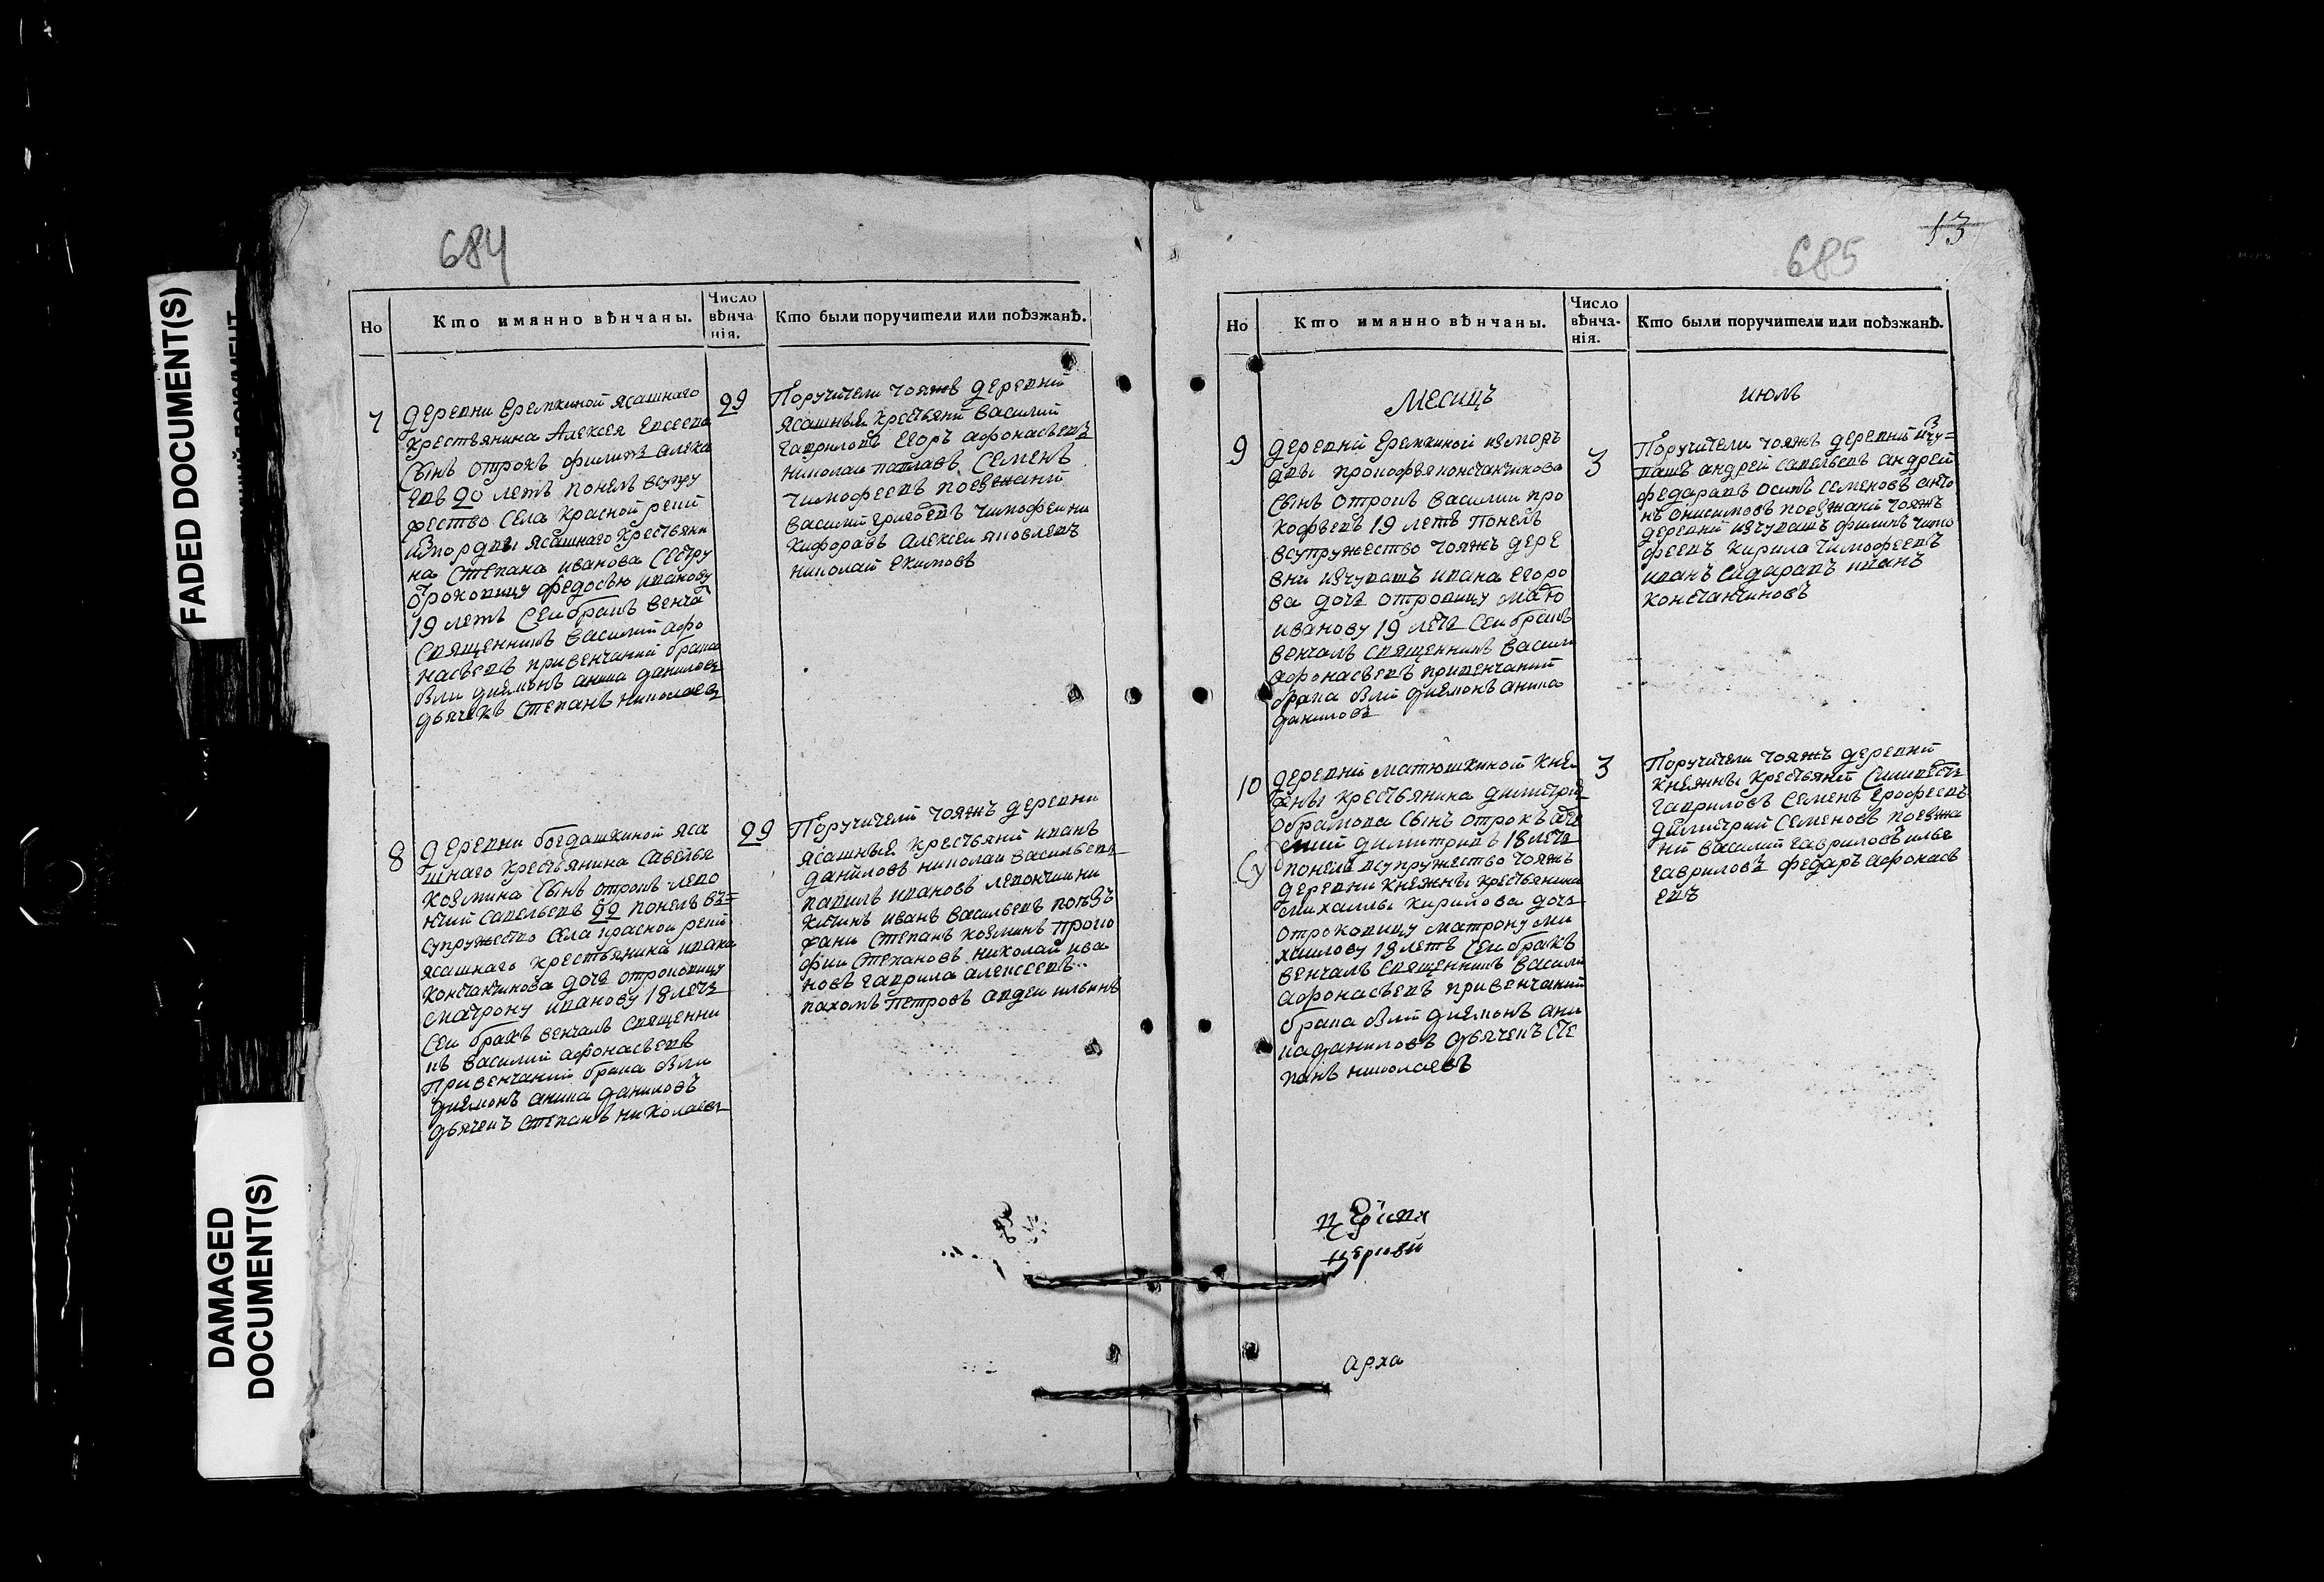 FADED DOCUMENT(S)
DAMAGED
DOCUMENT(S)
684
Но
Кто имянно вѣнчаны.
Число
вѣнча
нія.
Кто были поручители или поѣзжанѣ.
7
деревни Еремкиной ясашнаго
крестьянина Алексея Евсеева
сынъ отрокъ филипъ алекса
евъ 20 летъ понелъ всупру
жество села красной реки
измордвы ясашнаго крестьяни
на Степана иванова сестру
отроковицу федосью иванову
19 летъ сеи бракъ венча
священникъ василий афо
насьевъ привенчаний брака
были диямонъ аника даниловъ
дьячекъ степанъ николаевъ
29
Поручители тояжъ деревни
ясашныя крестьяни василий
гавриловъ егоръ афонасьевъ
николаи павлавъ семенъ
тимофеевъ поезжаний
василий григоревъ тимофеи ни
кифоравъ алексеи яковлевъ
николай екимовъ
8
деревни богдашкиной яса
шнаго крестьянина савелья
козмина сынъ отрокъ лево
нтий савельевъ 22 понелъ въ=
супружество села красной реки
ясашнаго крестьянина ивана
константинова дочь отроковицу
матрону иванову 18 летъ
сеи бракъ венчалъ священни
къ василий афонасьевъ
привенчаний брака были
диямонъ аника даниловъ
дьячекъ степанъ николаевъ
29
Поручители тояжъ деревни
ясашныя крестьяни иванъ
даниловъ николаи васильевъ
павилъ ивановъ левонтии ни
китинъ иванъ васильевъ поезъ
жани степанъ козминъ проко
фии степановъ николай ива
новъ гаврила алексеевъ
пахомъ петровъ авдеи ильинъ
13
685
Но
Кто имянно вѣнчаны.
Число
вѣнча-
нія.
Кто были поручители или поѣзжанѣ.
Месицъ
июль
9
деревни Еремкиной измор
двы прокофья константинова
сынъ отрокъ василии про
кофьевъ 19 летъ понелъ
всупружество тояжъ дере
вни изчувашъ ивана егоро
ва дочь отроковицу
иванову 19 летъ сеи бракъ
венчалъ священникъ васили
афонасьевъ привенчаний
брака были диямонъ аника
даниловъ
3
Поручители тояжъ деревни изчу=
вашъ андрей савельевъ андрей
федаравъ осипъ семеновъ анто
нъ онисимовъ поезжаний тояжъ
деревни изчувашъ филипъ тимо
феевъ кирила тимофеевъ
иванъ сидаравъ иванъ
константиновъ
10
деревни матюшкиной княж
жны крестьянина димитрия
обрамова сынъ отрокъ
димитриевъ 18 летъ
понелъ всупружество тояжъ
деревни княжны крестьянина
михаилы кирилова дочь
отроковицу матрону ми
хаилову 18 летъ сеи бракъ
венчалъ священникъ василий
афонасьевъ привенчаний
брака были диямонъ ани
ка даниловъ дьячекъ сте
панъ николаевъ
3
Поручители тояжъ деревни
княжны крестьяни
гавриловъ семенъ ерофеевъ
димитрий семеновъ поезжа
ни василий гавриловъ илья
гавриловъ федаръ афонась
евъ
церкви
арха